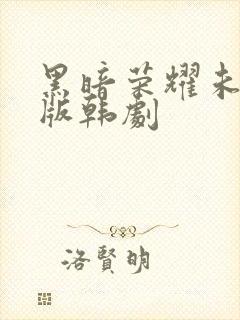 黑暗荣耀未
版韩剧
洛賢明